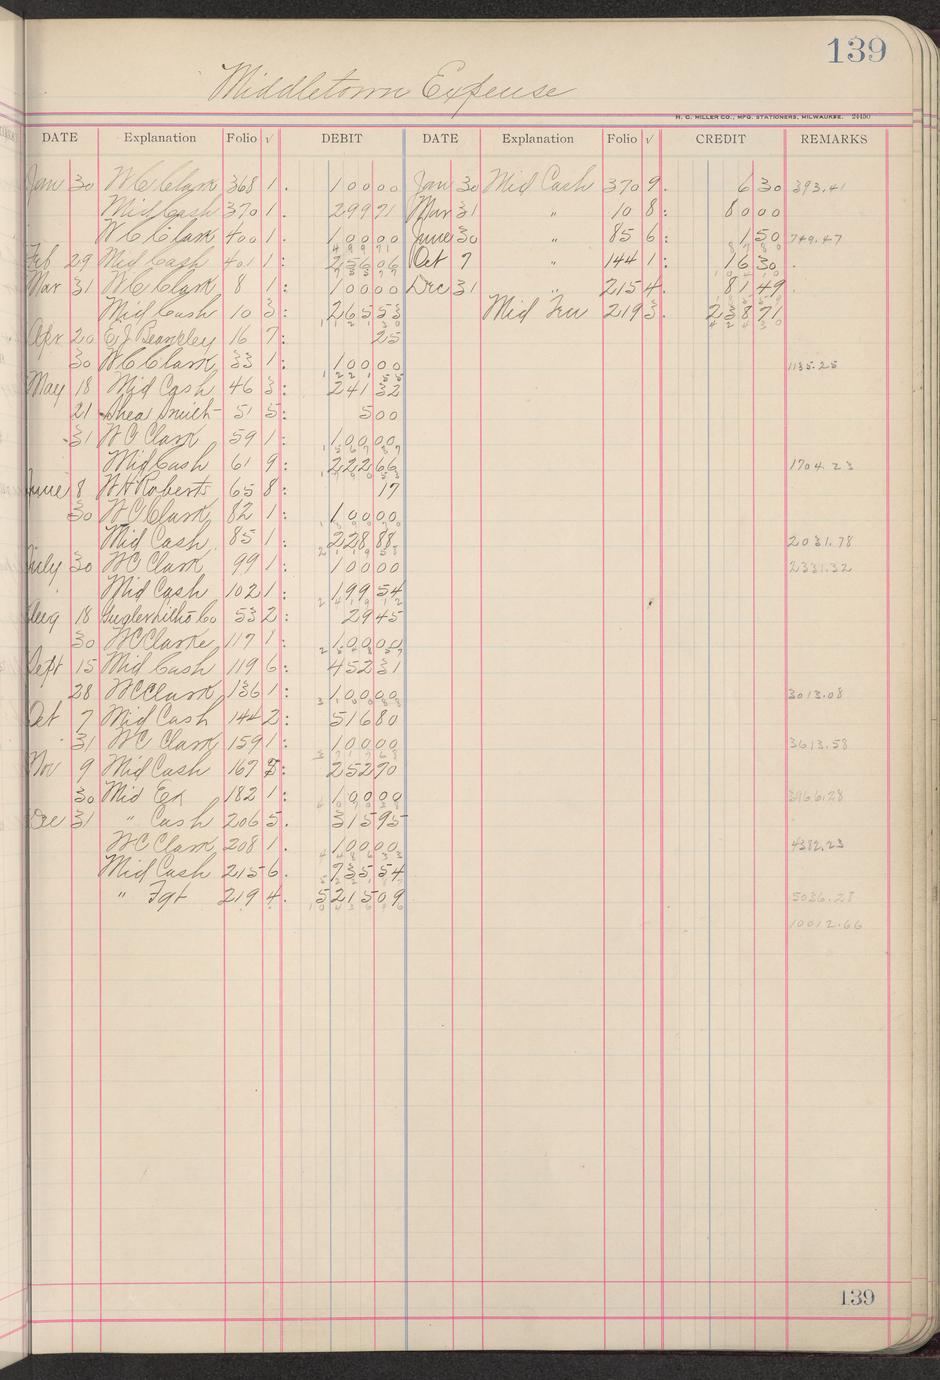 139
Middletown Expense
H. C. MILLER CO., MFG. STATIONERS, MILWAUKEE. 24450
DATE Explanation Folio √ DEBIT DATE Explanation Folio √ CREDIT REMARKS
Jan 30 W C Clark 368 1. 100 00 Jan 30 Mid Cash 370 9. 6 30 393.41
Mid Cash 370 1. 299 71 Mar 31 " 10 8: 80 00
W C Clark 400 1. 100 00 June 30 " 85 6: 1 50 749.47
Feb 29 Mid Cash 401 1: 256 06 Oct 7 " 144 1: 16 30
Mar 31 W C Clark 8 1: 100 00 Dec 31 " 215 4. 81 49
Mid Cash 10 3: 265 53 Mid 219 3. 238 71
Apr 20 E J 16 7: 25
30 W C Clark 33 1: 100 00 1135.25
May 18 Mid Cash 46 3: 241 32
21 Shea Smith 51 5: 5 00
31 W C Clark 59 1: 100 00
Mid Cash 61 9: 222 66 1704.23
June 8 W H Roberts 65 8: 17
30 W C Clark 82 1: 100 00
Mid Cash 85 1: 228 88 2031.78
July 30 W C Clark 99 1: 100 00 2331.32
Mid Cash 102 1: 199 54
Aug 18 Co 53 2: 29 45
30 W C Clarke 117 1: 100 00
Sept 15 Mid Cash 119 6: 452 31
28 W C Clark 136 1: 100 00 3013.08
Oct 7 Mid Cash 144 2: 516 80
31 W C Clark 159 1: 100 00 3613.58
Nov 9 Mid Cash 167 5: 252 70
30 Mid Ex 182 1: 100 00 3966.28
Dec 31 " Cash 206 5. 315 95
W C Clark 208 1. 100 00 4382.23
Mid Cash 215 6. 735 54
" Fgt 219 4. 5215 09 5036.28
10012.66
139